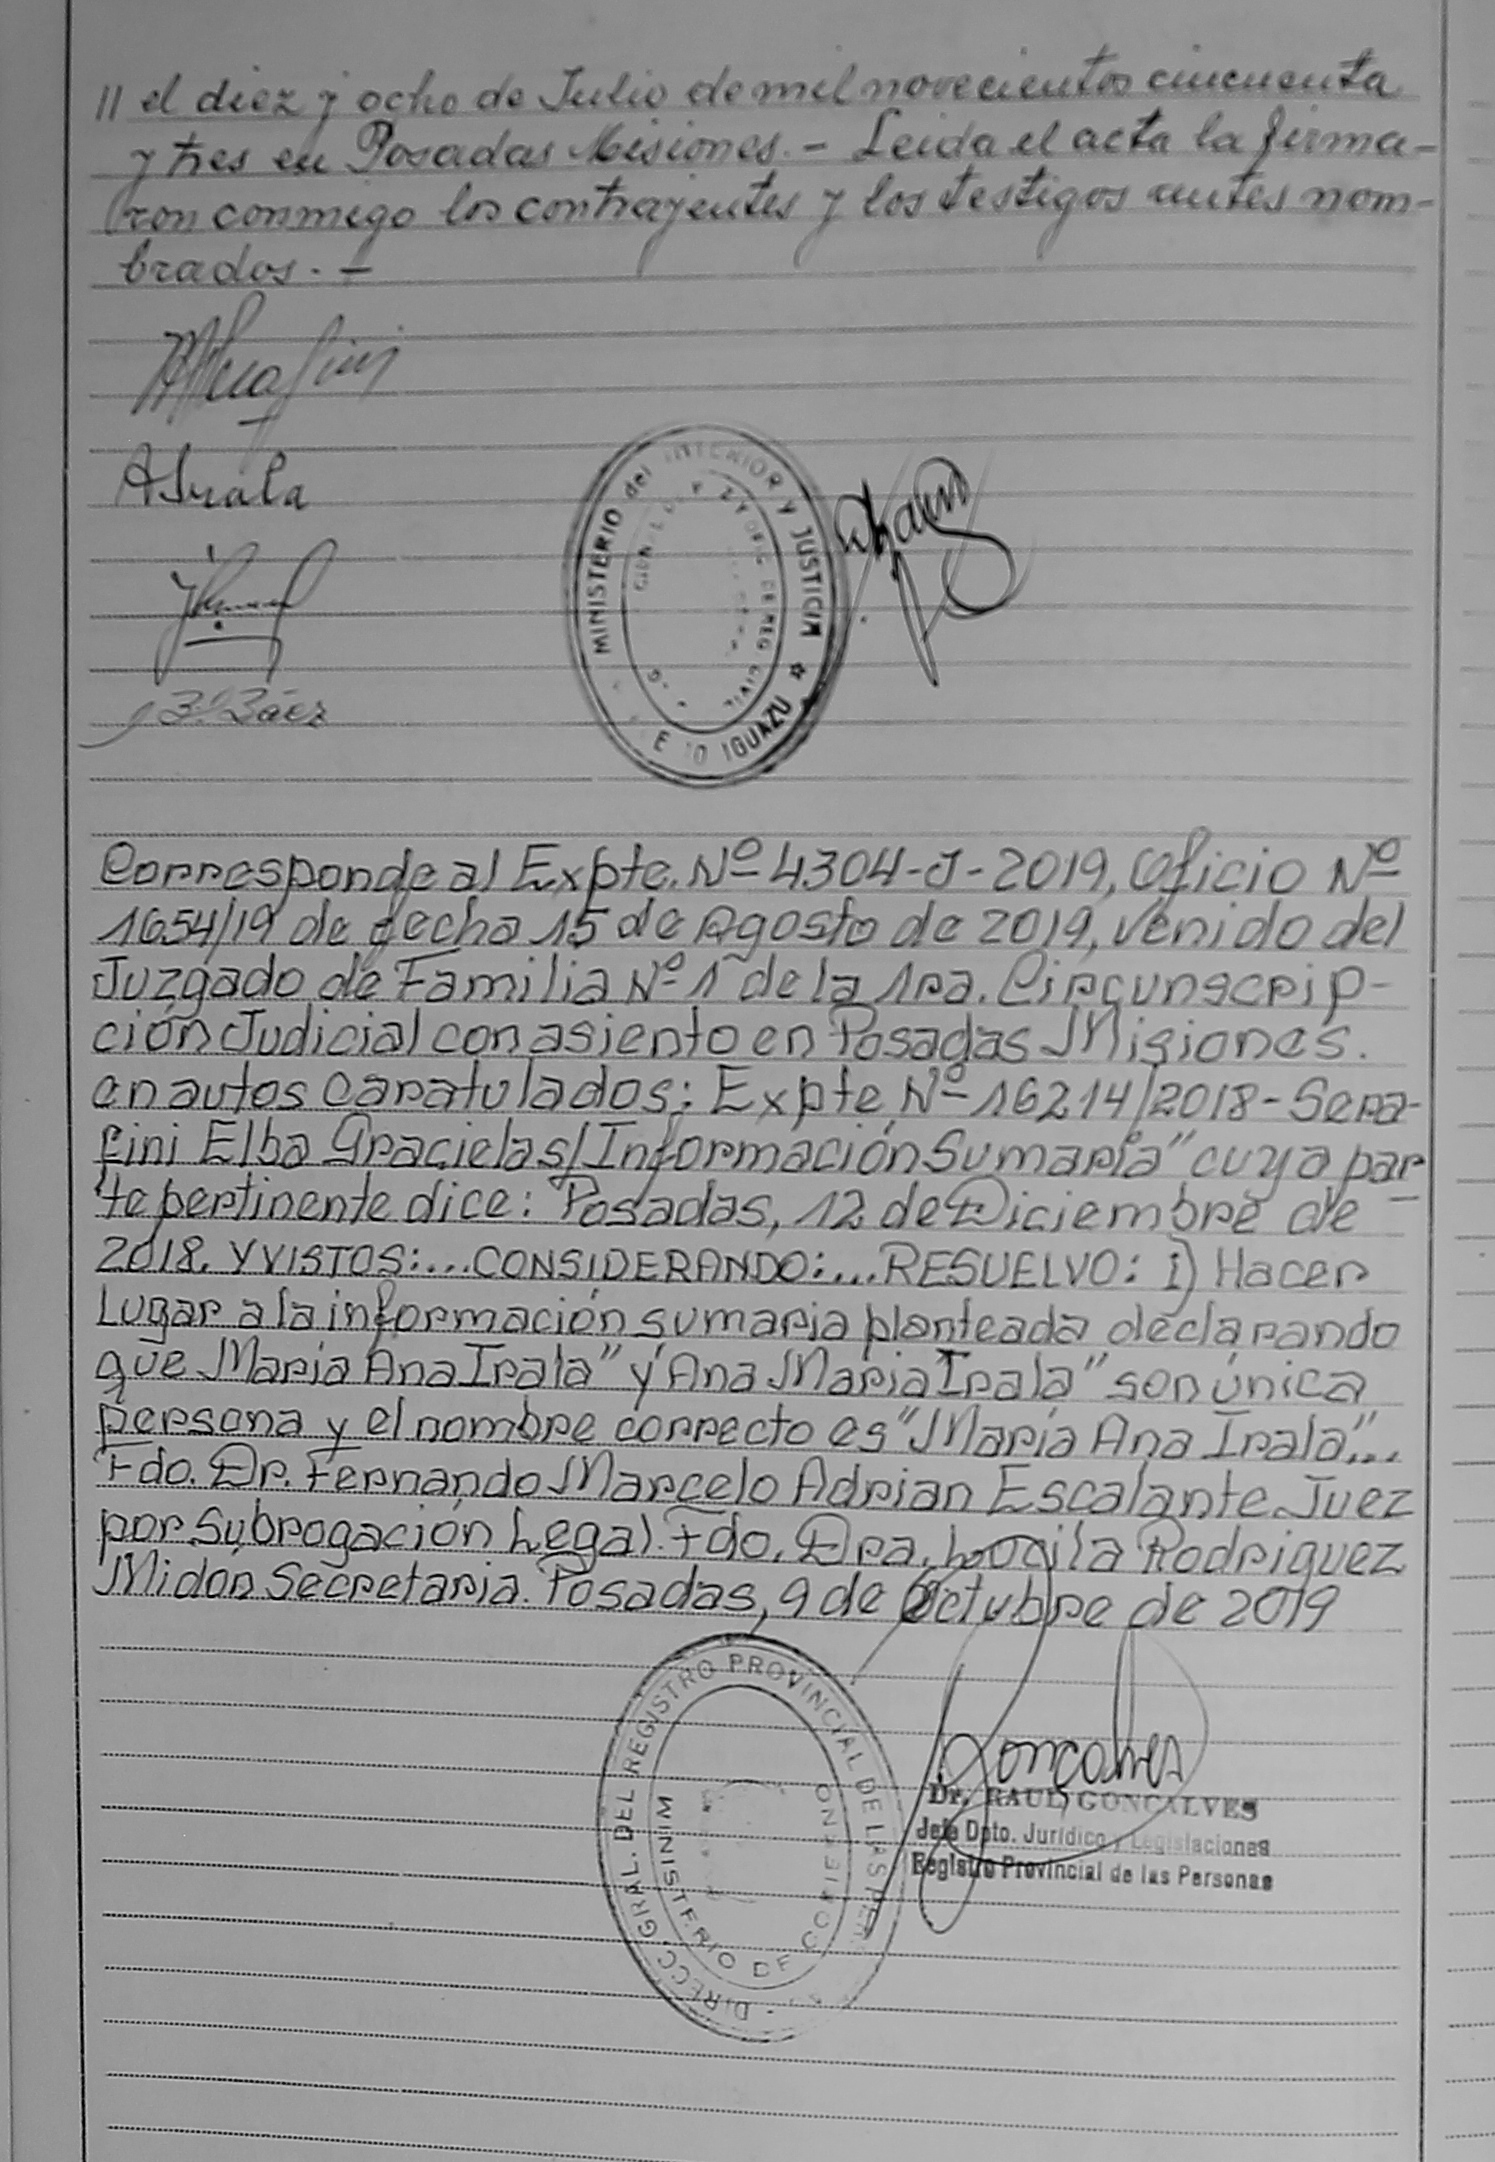 // el diez y ocho de Julio de mil novecientos cincuenta
y tres en Posadas Misiones.- Leida el acta la firma-
ron conmigo los contrayentes y los testigos antes nom-
brados.-
AIrala
Báez
MINISTERIO del INTERIOR Y JUSTICIA
IGUAZU
Corresponde al Expte. Nº 4304-J-2019, Oficio Nº
1654/19 de fecha 15 de Agosto de 2019, venido del
Juzgado de Familia Nº 1 de la 1ra. Circunscrip-
ción Judicial con asiento en Posadas Misiones.
en autos caratulados: Expte Nº 16214/2018-Sera-
fini Elba Graciela s/Información Sumaria" cuya par
te pertinente dice: "Posadas, 12 de Diciembre de
2018. Y VISTOS:...CONSIDERANDO:...RESUELVO: i) Hacer
Lugar a la información sumaria planteada declarando
que Maria Ana Irala" y "Ana Maria Irala" son única
persona y el nombre correcto es "María Ana Irala"...
Fdo. Dr. Fernando Marcelo Adrian Escalante Juez
por Subrogación Legal. Fdo. Dra. Lucila Rodriguez
Midón Secretaria. Posadas, 9 de Octubre de 2019
DIRECC. GRAL. DEL REGISTRO PROVINCIAL DE LAS
MINISTERIO DE GOBIERNO
Goncalves
Dr. RAUL GONCALVES
Jefe Dpto. Jurídico y Legislaciones
Registro Provincial de las Personas